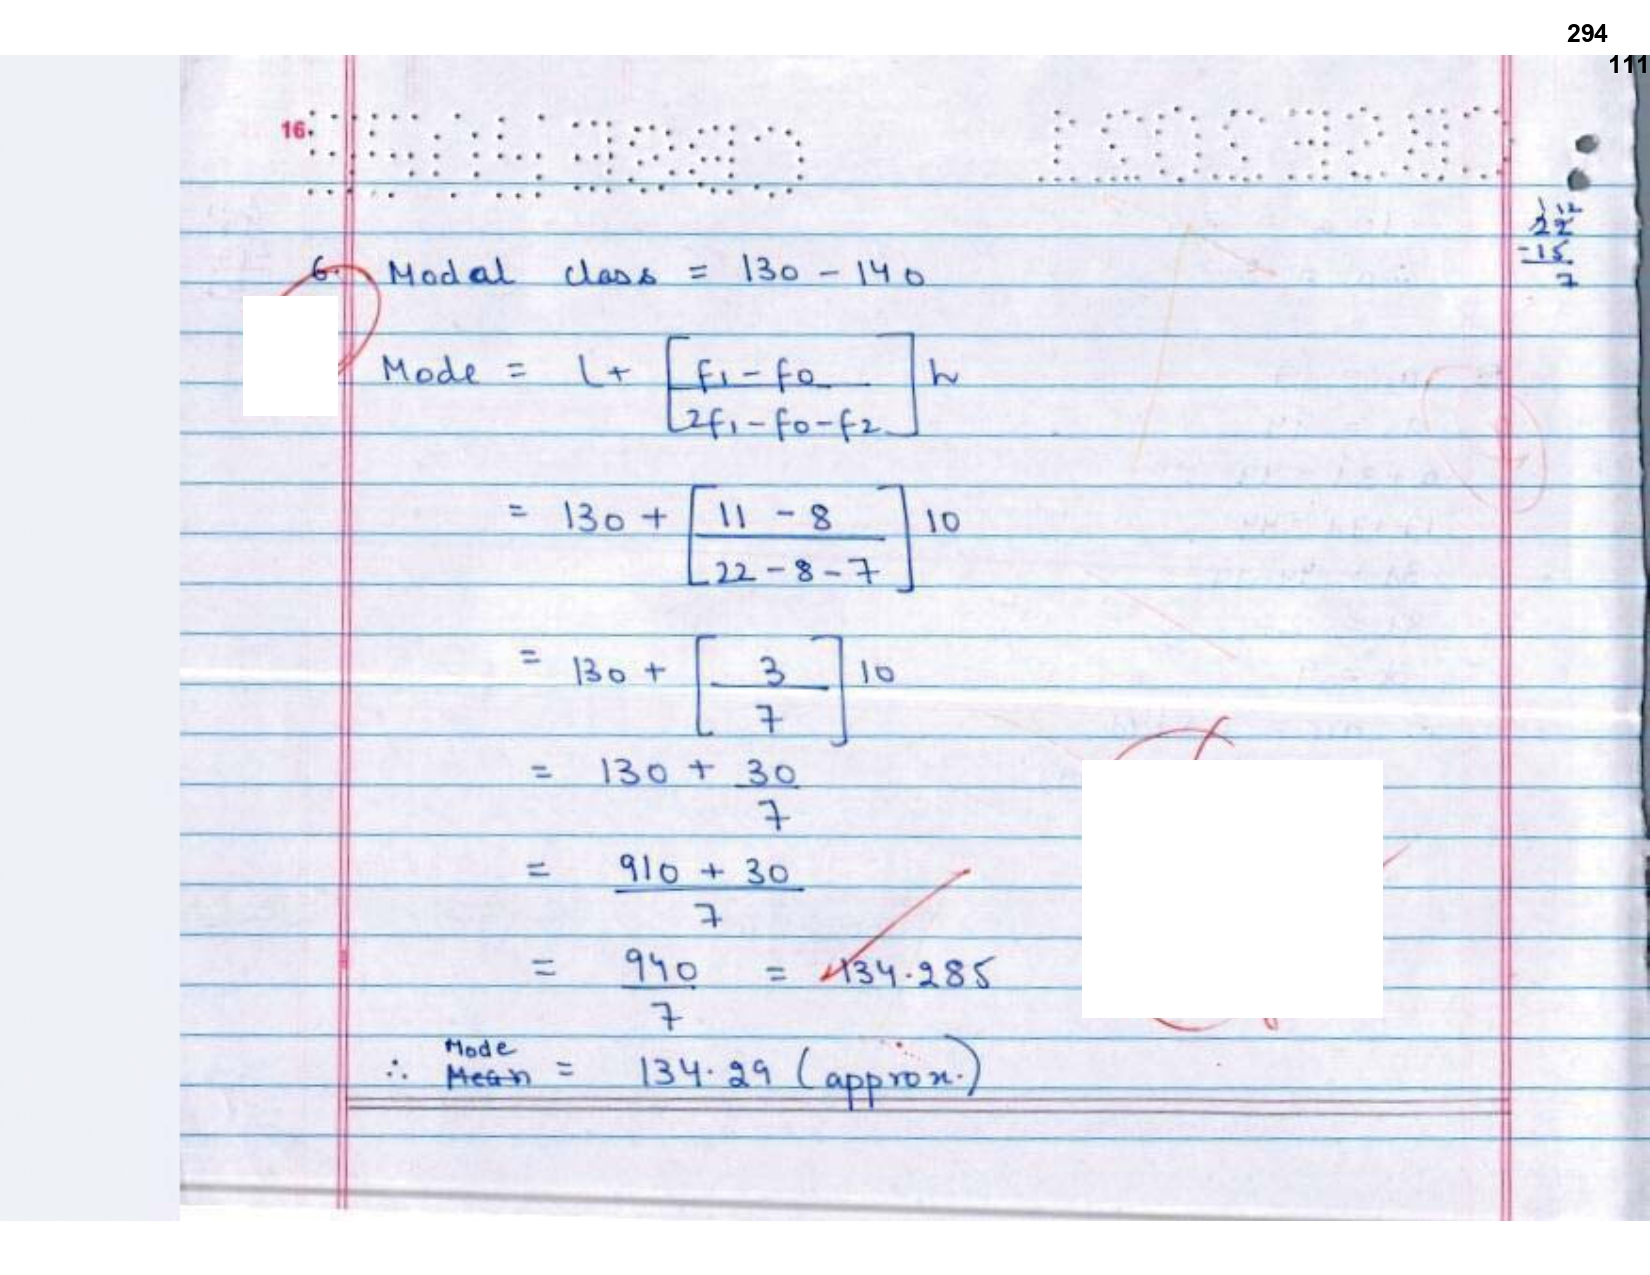 294
111
16
1 12
22
-15
7
6. Modal class = 130 - 140
Mode = l + [f1 - f0 / 2f1 - f0 - f2] h
= 130 + [11 - 8 / 22 - 8 - 7] 10
= 130 + [3 / 7] 10
= 130 + 30 / 7
= 910 + 30 / 7
= 940 / 7 = 134.285
Mode
∴ Mean = 134.29 (approx.)